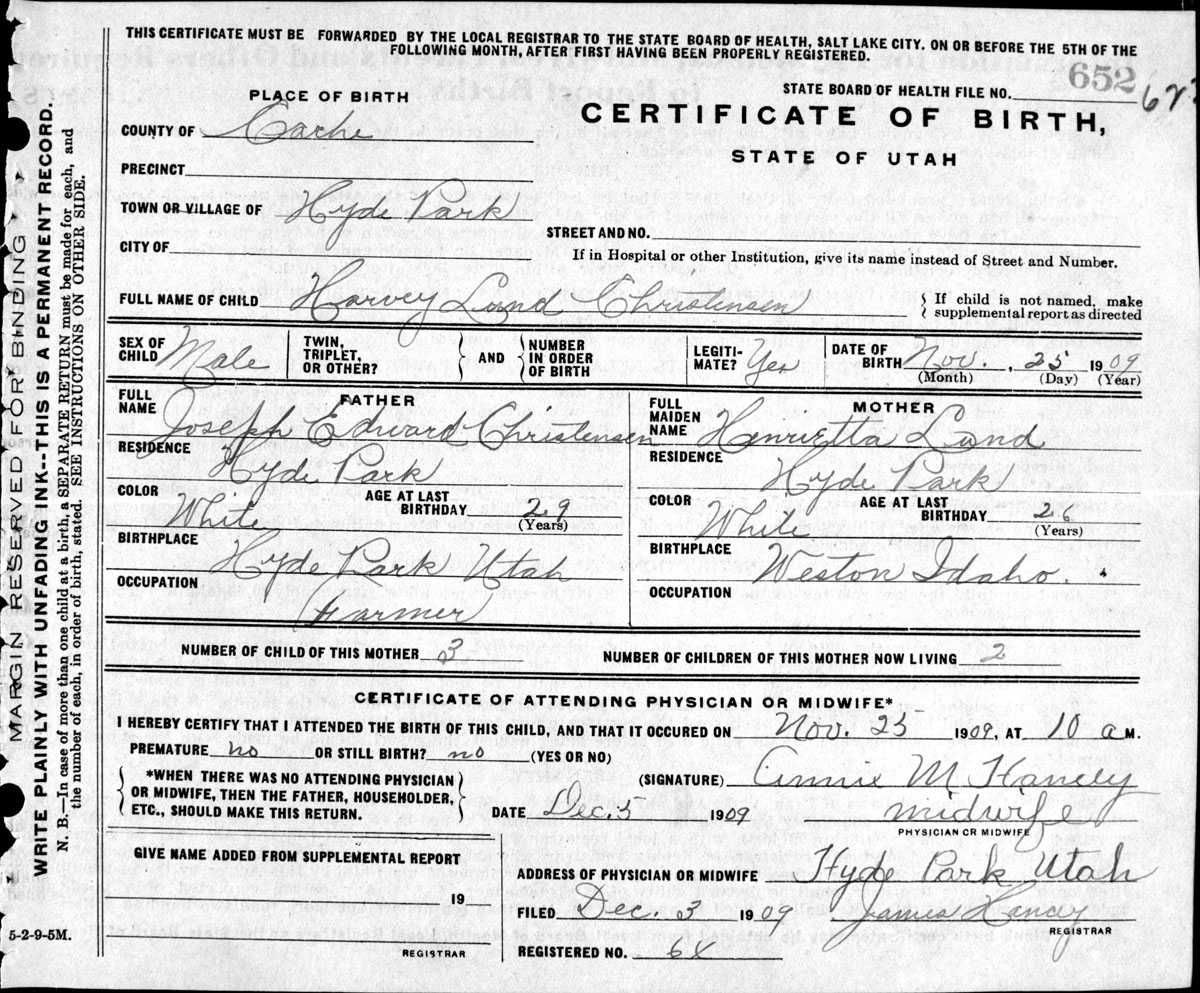 THIS CERTIFICATE MUST BE FORWARDED BY THE LOCAL REGISTRAR TO THE STATE BOARD OF HEALTH, SALT LAKE CITY. ON OR BEFORE THE 5TH OF THE
FOLLOWING MONTH, AFTER FIRST HAVING BEEN PROPERLY REGISTERED.
STATE BOARD OF HEALTH FILE NO. 652
PLACE OF BIRTH
CERTIFICATE OF BIRTH,
STATE OF UTAH
COUNTY OF Cache
PRECINCT
TOWN OR VILLAGE OF Hyde Park
STREET AND NO.
CITY OF
If in Hospital or other Institution, give its name instead of Street and Number.
FULL NAME OF CHILD Harvey Lund Christensen
{ If child is not named, make
supplemental report as directed
SEX OF CHILD Male
TWIN, TRIPLET, OR OTHER? } AND { NUMBER IN ORDER OF BIRTH
LEGITIMATE? Yes
DATE OF BIRTH Nov. , 25 1909
(Month) (Day) (Year)
FATHER
FULL NAME Joseph Edward Christensen
RESIDENCE Hyde Park
COLOR White AGE AT LAST BIRTHDAY 29
(Years)
BIRTHPLACE Hyde Park Utah
OCCUPATION Farmer
MOTHER
FULL MAIDEN NAME Henrietta Lund
RESIDENCE Hyde Park
COLOR White AGE AT LAST BIRTHDAY 26
(Years)
BIRTHPLACE Weston Idaho.
OCCUPATION
NUMBER OF CHILD OF THIS MOTHER 3 NUMBER OF CHILDREN OF THIS MOTHER NOW LIVING 2
CERTIFICATE OF ATTENDING PHYSICIAN OR MIDWIFE*
I HEREBY CERTIFY THAT I ATTENDED THE BIRTH OF THIS CHILD, AND THAT IT OCCURED ON Nov. 25 1909, AT 10 a M.
PREMATURE no OR STILL BIRTH? no (YES OR NO)
*WHEN THERE WAS NO ATTENDING PHYSICIAN
OR MIDWIFE, THEN THE FATHER, HOUSEHOLDER,
ETC., SHOULD MAKE THIS RETURN.
(SIGNATURE) Annie M Hancey
DATE Dec. 3 1909 midwife
PHYSICIAN OR MIDWIFE
GIVE NAME ADDED FROM SUPPLEMENTAL REPORT
19
REGISTRAR
ADDRESS OF PHYSICIAN OR MIDWIFE Hyde Park Utah
FILED Dec. 3 1909 James Hancey
REGISTRAR
REGISTERED NO.
5-2-9-5M.
MARGIN RESERVED FOR BINDING
WRITE PLAINLY WITH UNFADING INK--THIS IS A PERMANENT RECORD.
N. B.—In case of more than one child at a birth, a SEPARATE RETURN must be made for each, and
the number of each, in order of birth, stated. SEE INSTRUCTIONS ON OTHER SIDE.